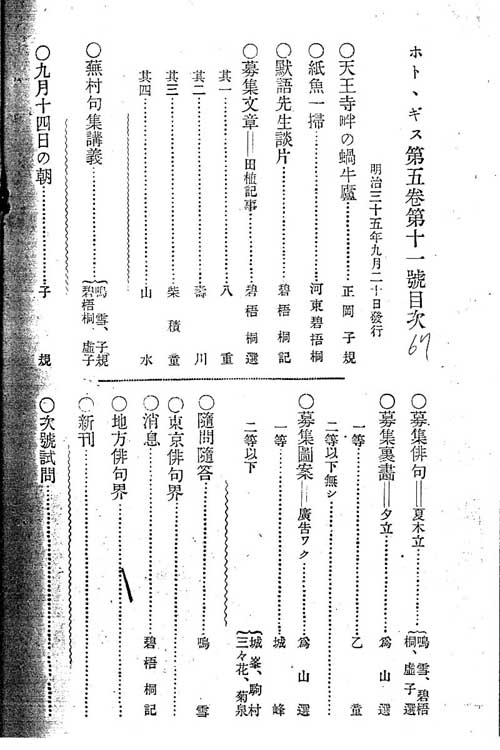 ホトヽギス第五卷第十一號目次
67
明治三十五年九月二十日發行
○天王寺畔の蝸牛廬………正岡子規
○紙魚一掃………河東碧梧桐
○默語先生談片………碧梧桐記
○募集文章＝田植記事………碧梧桐選
其一………八重
其二………壽川
其三………柴積童
其四………山水
○蕪村句集講義………鳴雪、子規
碧梧桐、虛子
○九月十四日の朝………子規
○募集俳句＝夏木立………鳴雪、碧梧
桐、虛子選
○募集裏畵＝夕立………爲山選
一等………乙童
二等以下無シ
○募集圖案＝廣告ワク………爲山選
一等………城峰
二等以下
城峯、駒村
三々花、菊泉
○隨問隨答………鳴雪
○東京俳句界………
○消息………碧梧桐記
○地方俳句界………
○新刊………
○次號試問………